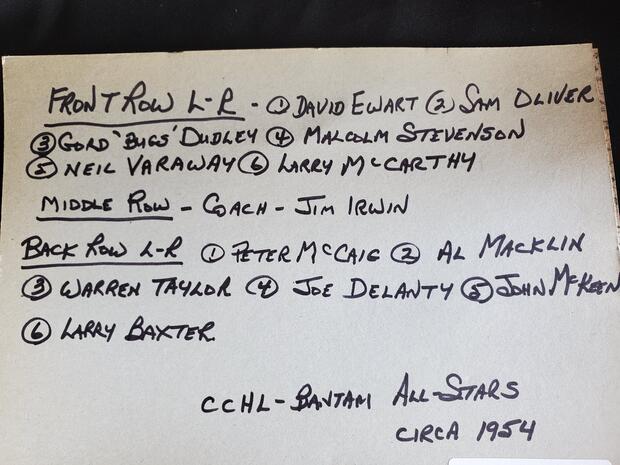 FRONT ROW L-R - ① DAVID EWART ② SAM OLIVER
③ GORD "BUGS" DUDLEY ④ MALCOLM STEVENSON
⑤ NEIL VARAWAY ⑥ LARRY McCARTHY
MIDDLE ROW - COACH - JIM IRWIN
BACK ROW L-R ① PETER McCAIG ② AL MACKLIN
③ WARREN TAYLOR ④ JOE DELANTY ⑤ JOHN McKEEN
⑥ LARRY BAXTER
CCHL - BANTAM ALL-STARS
CIRCA 1954